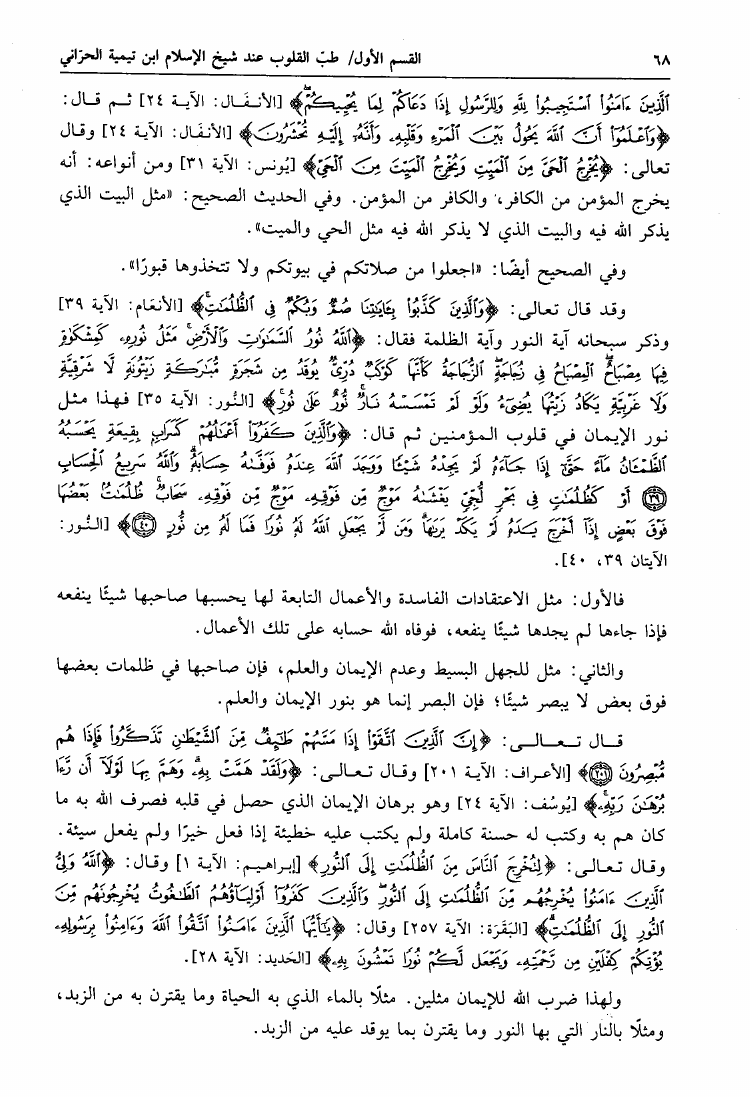 ٦٨ القسم الأول/ طبّ القلوب عند شيخ الإسلام ابن تيمية الحرّاني
ٱلَّذِينَ ءَامَنُوا۟ ٱسْتَجِيبُوا۟ لِلَّهِ وَلِلرَّسُولِ إِذَا دَعَاكُمْ لِمَا يُحْيِيكُمْ﴾ [الأنفَال: الآية ٢٤] ثم قال:
﴿وَٱعْلَمُوٓا۟ أَنَّ ٱللَّهَ يَحُولُ بَيْنَ ٱلْمَرْءِ وَقَلْبِهِۦ وَأَنَّهُۥٓ إِلَيْهِ تُحْشَرُونَ﴾ [الأنفَال: الآية ٢٤] وقال
تعالى: ﴿يُخْرِجُ ٱلْحَىَّ مِنَ ٱلْمَيِّتِ وَيُخْرِجُ ٱلْمَيِّتَ مِنَ ٱلْحَىِّ﴾ [يُونس: الآية ٣١] ومن أنواعه: أنه
يخرج المؤمن من الكافر، والكافر من المؤمن. وفي الحديث الصحيح: «مثل البيت الذي
يذكر الله فيه والبيت الذي لا يذكر الله فيه مثل الحي والميت».
وفي الصحيح أيضًا: «اجعلوا من صلاتكم في بيوتكم ولا تتخذوها قبورًا».
وقد قال تعالى: ﴿وَٱلَّذِينَ كَذَّبُوا۟ بِـَٔايَـٰتِنَا صُمٌّ وَبُكْمٌ فِى ٱلظُّلُمَـٰتِ﴾ [الأنعَام: الآية ٣٩]
وذكر سبحانه آية النور وآية الظلمة فقال: ﴿ٱللَّهُ نُورُ ٱلسَّمَـٰوَٰتِ وَٱلْأَرْضِ مَثَلُ نُورِهِۦ كَمِشْكَوٰةٍ
فِيهَا مِصْبَاحٌ ٱلْمِصْبَاحُ فِى زُجَاجَةٍ ٱلزُّجَاجَةُ كَأَنَّهَا كَوْكَبٌ دُرِّىٌّ يُوقَدُ مِن شَجَرَةٍ مُّبَـٰرَكَةٍ زَيْتُونَةٍ لَّا شَرْقِيَّةٍ
وَلَا غَرْبِيَّةٍ يَكَادُ زَيْتُهَا يُضِىٓءُ وَلَوْ لَمْ تَمْسَسْهُ نَارٌ نُّورٌ عَلَىٰ نُورٍ﴾ [النُّور: الآية ٣٥] فهذا مثل
نور الإيمان في قلوب المؤمنين ثم قال: ﴿وَٱلَّذِينَ كَفَرُوٓا۟ أَعْمَـٰلُهُمْ كَسَرَابٍۭ بِقِيعَةٍ يَحْسَبُهُ
ٱلظَّمْـَٔانُ مَآءً حَتَّىٰٓ إِذَا جَآءَهُۥ لَمْ يَجِدْهُ شَيْـًٔا وَوَجَدَ ٱللَّهَ عِندَهُۥ فَوَفَّىٰهُ حِسَابَهُۥ وَٱللَّهُ سَرِيعُ ٱلْحِسَابِ
﴿٣٩﴾ أَوْ كَظُلُمَـٰتٍ فِى بَحْرٍ لُّجِّىٍّ يَغْشَىٰهُ مَوْجٌ مِّن فَوْقِهِۦ مَوْجٌ مِّن فَوْقِهِۦ سَحَابٌ ظُلُمَـٰتٌۢ بَعْضُهَا
فَوْقَ بَعْضٍ إِذَآ أَخْرَجَ يَدَهُۥ لَمْ يَكَدْ يَرَىٰهَا وَمَن لَّمْ يَجْعَلِ ٱللَّهُ لَهُۥ نُورًا فَمَا لَهُۥ مِن نُّورٍ ﴿٤٠﴾﴾ [النُّور:
الآيتان ٣٩، ٤٠].
فالأول: مثل الاعتقادات الفاسدة والأعمال التابعة لها يحسبها صاحبها شيئًا ينفعه
فإذا جاءها لم يجدها شيئًا ينفعه، فوفاه الله حسابه على تلك الأعمال.
والثاني: مثل للجهل البسيط وعدم الإيمان والعلم، فإن صاحبها في ظلمات بعضها
فوق بعض لا يبصر شيئًا؛ فإن البصر إنما هو بنور الإيمان والعلم.
قال تعالى: ﴿إِنَّ ٱلَّذِينَ ٱتَّقَوْا۟ إِذَا مَسَّهُمْ طَـٰٓئِفٌ مِّنَ ٱلشَّيْطَـٰنِ تَذَكَّرُوا۟ فَإِذَا هُم
مُّبْصِرُونَ ﴿٢٠١﴾﴾ [الأعراف: الآية ٢٠١] وقال تعالى: ﴿وَلَقَدْ هَمَّتْ بِهِۦ وَهَمَّ بِهَا لَوْلَآ أَن رَّءَا
بُرْهَـٰنَ رَبِّهِۦ﴾ [يُوسُف: الآية ٢٤] وهو برهان الإيمان الذي حصل في قلبه فصرف الله به ما
كان هم به وكتب له حسنة كاملة ولم يكتب عليه خطيئة إذا فعل خيرًا ولم يفعل سيئة.
وقال تعالى: ﴿لِتُخْرِجَ ٱلنَّاسَ مِنَ ٱلظُّلُمَـٰتِ إِلَى ٱلنُّورِ﴾ [إبراهيم: الآية ١] وقال: ﴿ٱللَّهُ وَلِىُّ
ٱلَّذِينَ ءَامَنُوا۟ يُخْرِجُهُم مِّنَ ٱلظُّلُمَـٰتِ إِلَى ٱلنُّورِ وَٱلَّذِينَ كَفَرُوٓا۟ أَوْلِيَآؤُهُمُ ٱلطَّـٰغُوتُ يُخْرِجُونَهُم مِّنَ
ٱلنُّورِ إِلَى ٱلظُّلُمَـٰتِ﴾ [البَقَرَة: الآية ٢٥٧] وقال: ﴿يَـٰٓأَيُّهَا ٱلَّذِينَ ءَامَنُوا۟ ٱتَّقُوا۟ ٱللَّهَ وَءَامِنُوا۟ بِرَسُولِهِۦ
يُؤْتِكُمْ كِفْلَيْنِ مِن رَّحْمَتِهِۦ وَيَجْعَل لَّكُمْ نُورًا تَمْشُونَ بِهِۦ﴾ [الحَديد: الآية ٢٨].
ولهذا ضرب الله للإيمان مثلين. مثلًا بالماء الذي به الحياة وما يقترن به من الزبد،
ومثلًا بالنار التي بها النور وما يقترن بما يوقد عليه من الزبد.